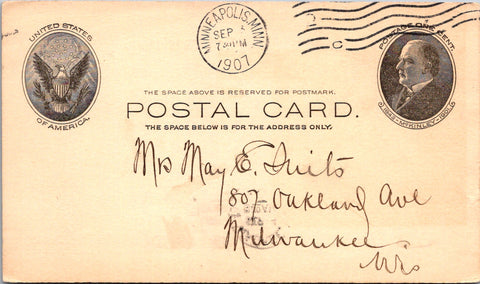 UNITED STATES
OF AMERICA.
MINNEAPOLIS, MINN.
SEP 5
7 PM
1907
C
POSTAGE ONE CENT.
1843-McKINLEY-1901.
THE SPACE ABOVE IS RESERVED FOR POSTMARK.
POSTAL CARD.
THE SPACE BELOW IS FOR THE ADDRESS ONLY.
Mrs May E. Suits
1807 Oakland Ave
Milwaukee
Wis